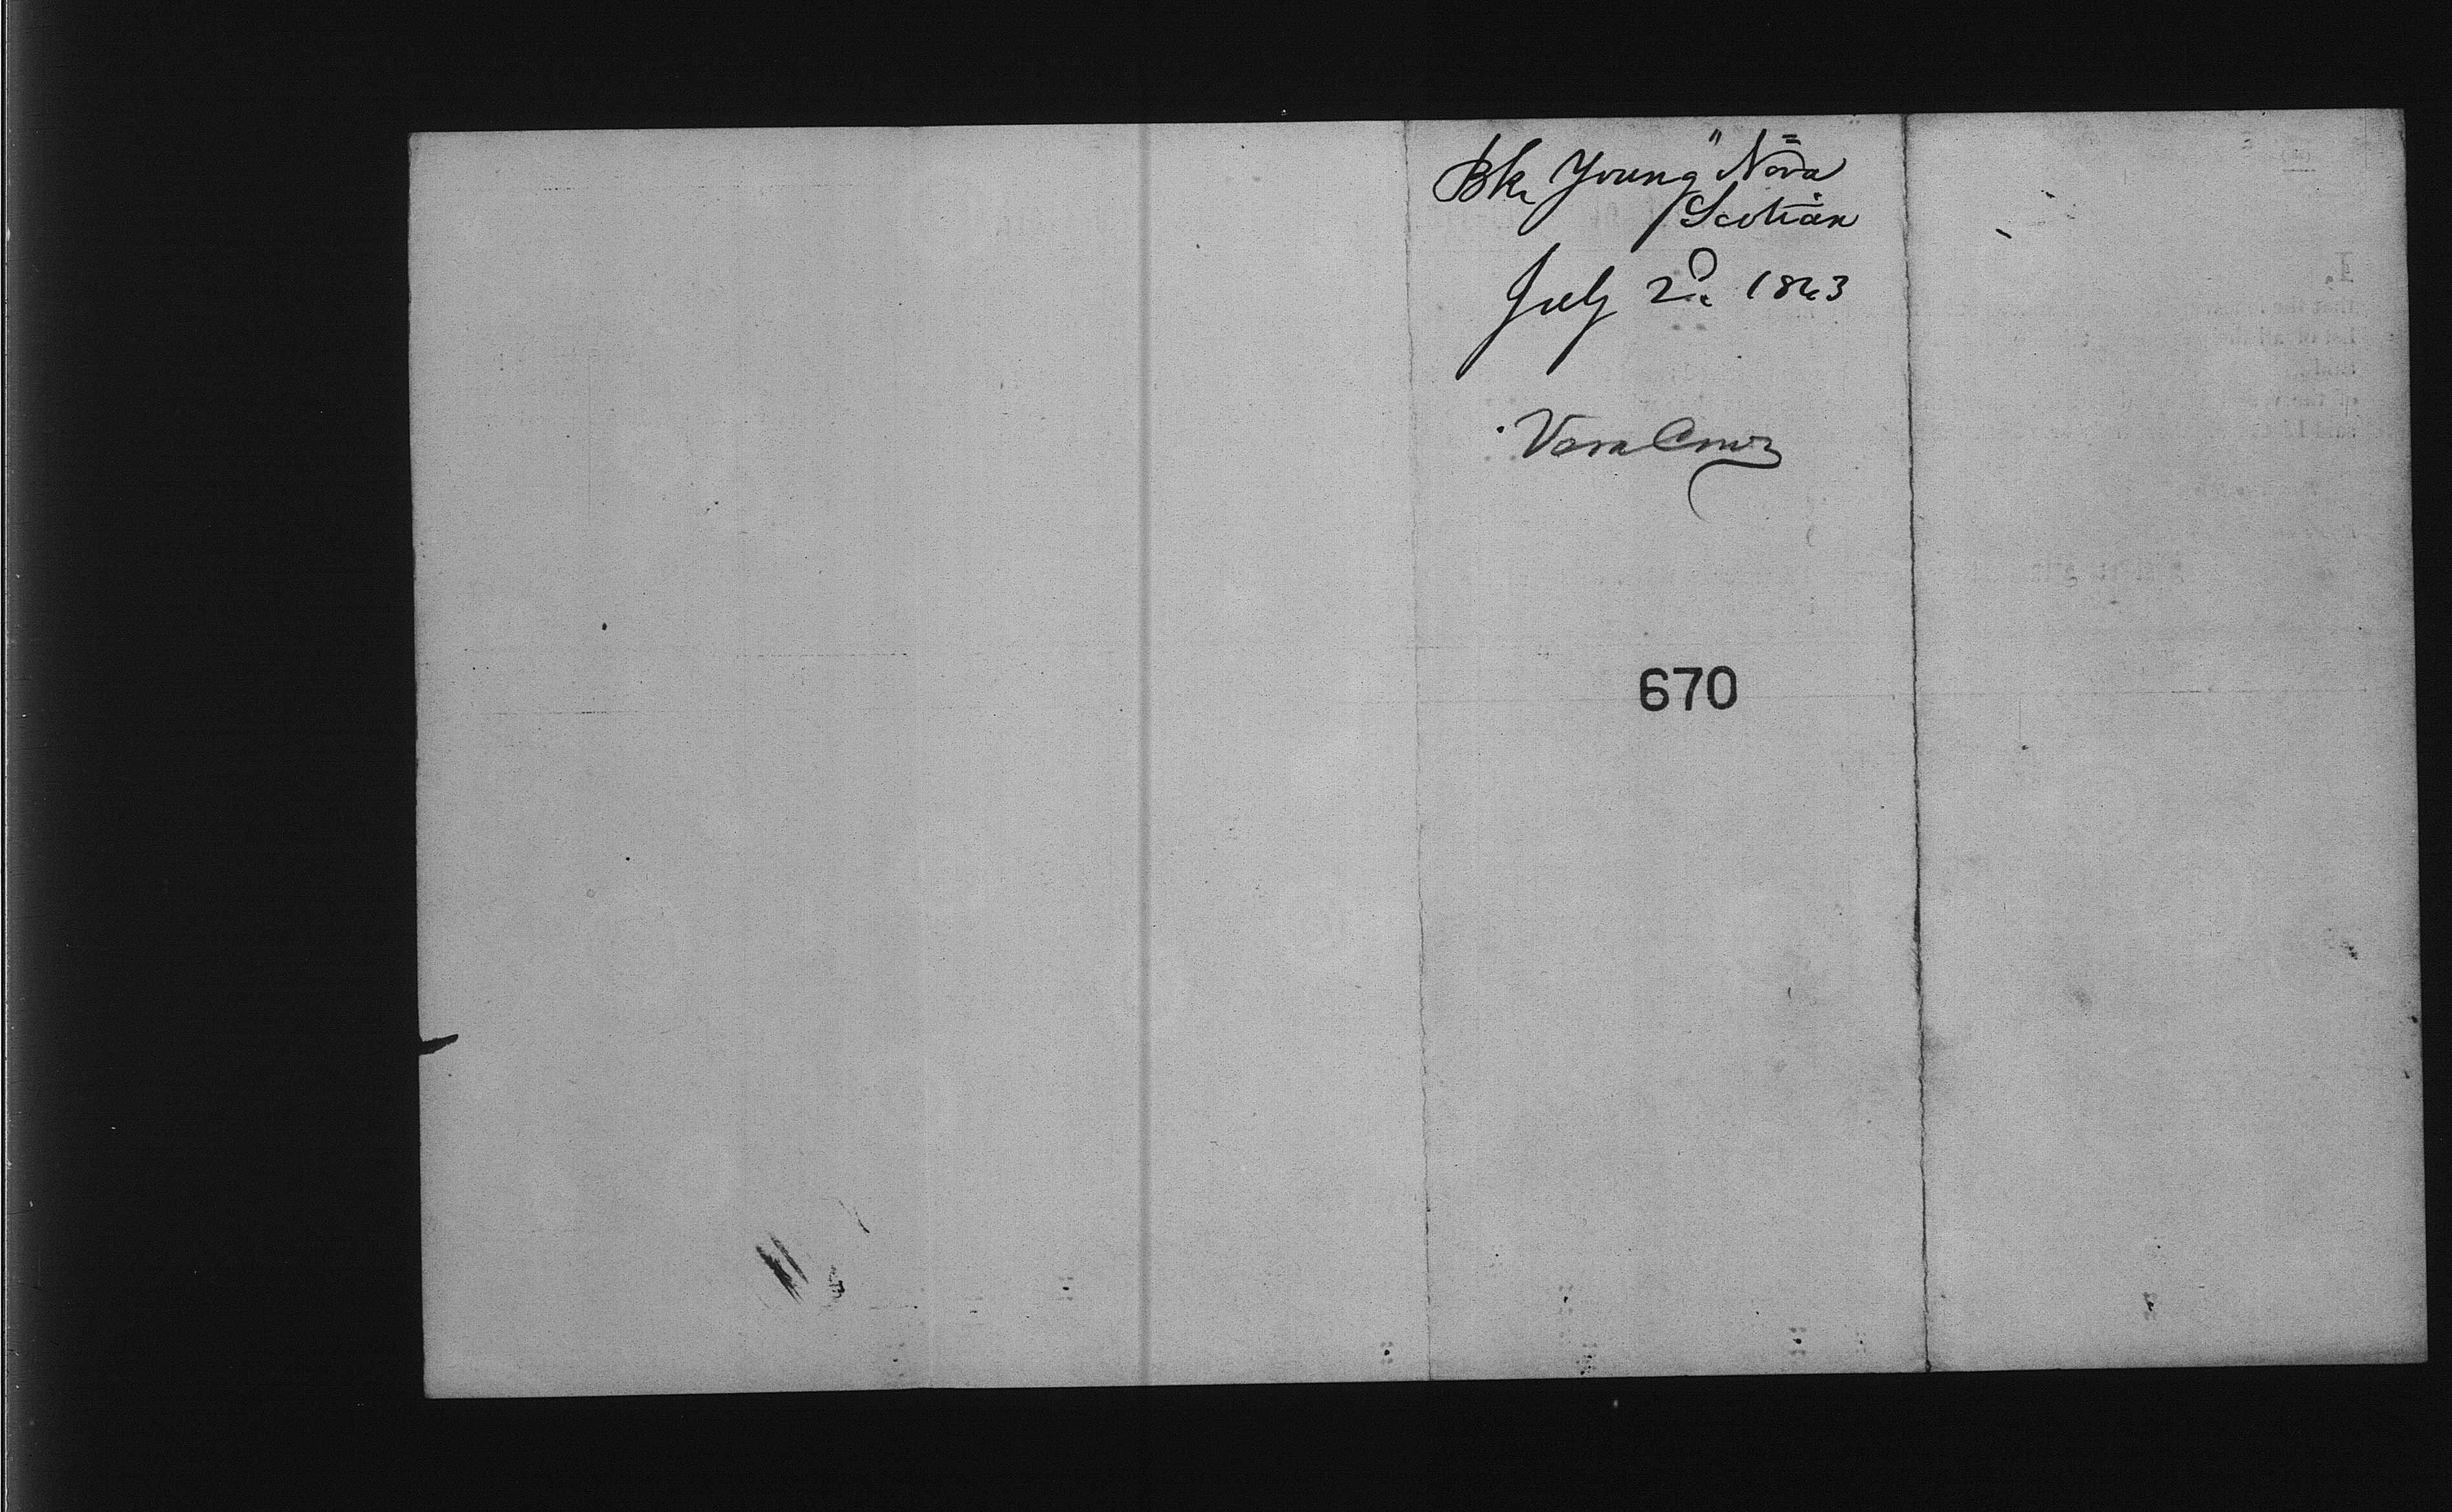 Bk Young" Nova
Scotian
July 2d 1863
Vera Cruz
670